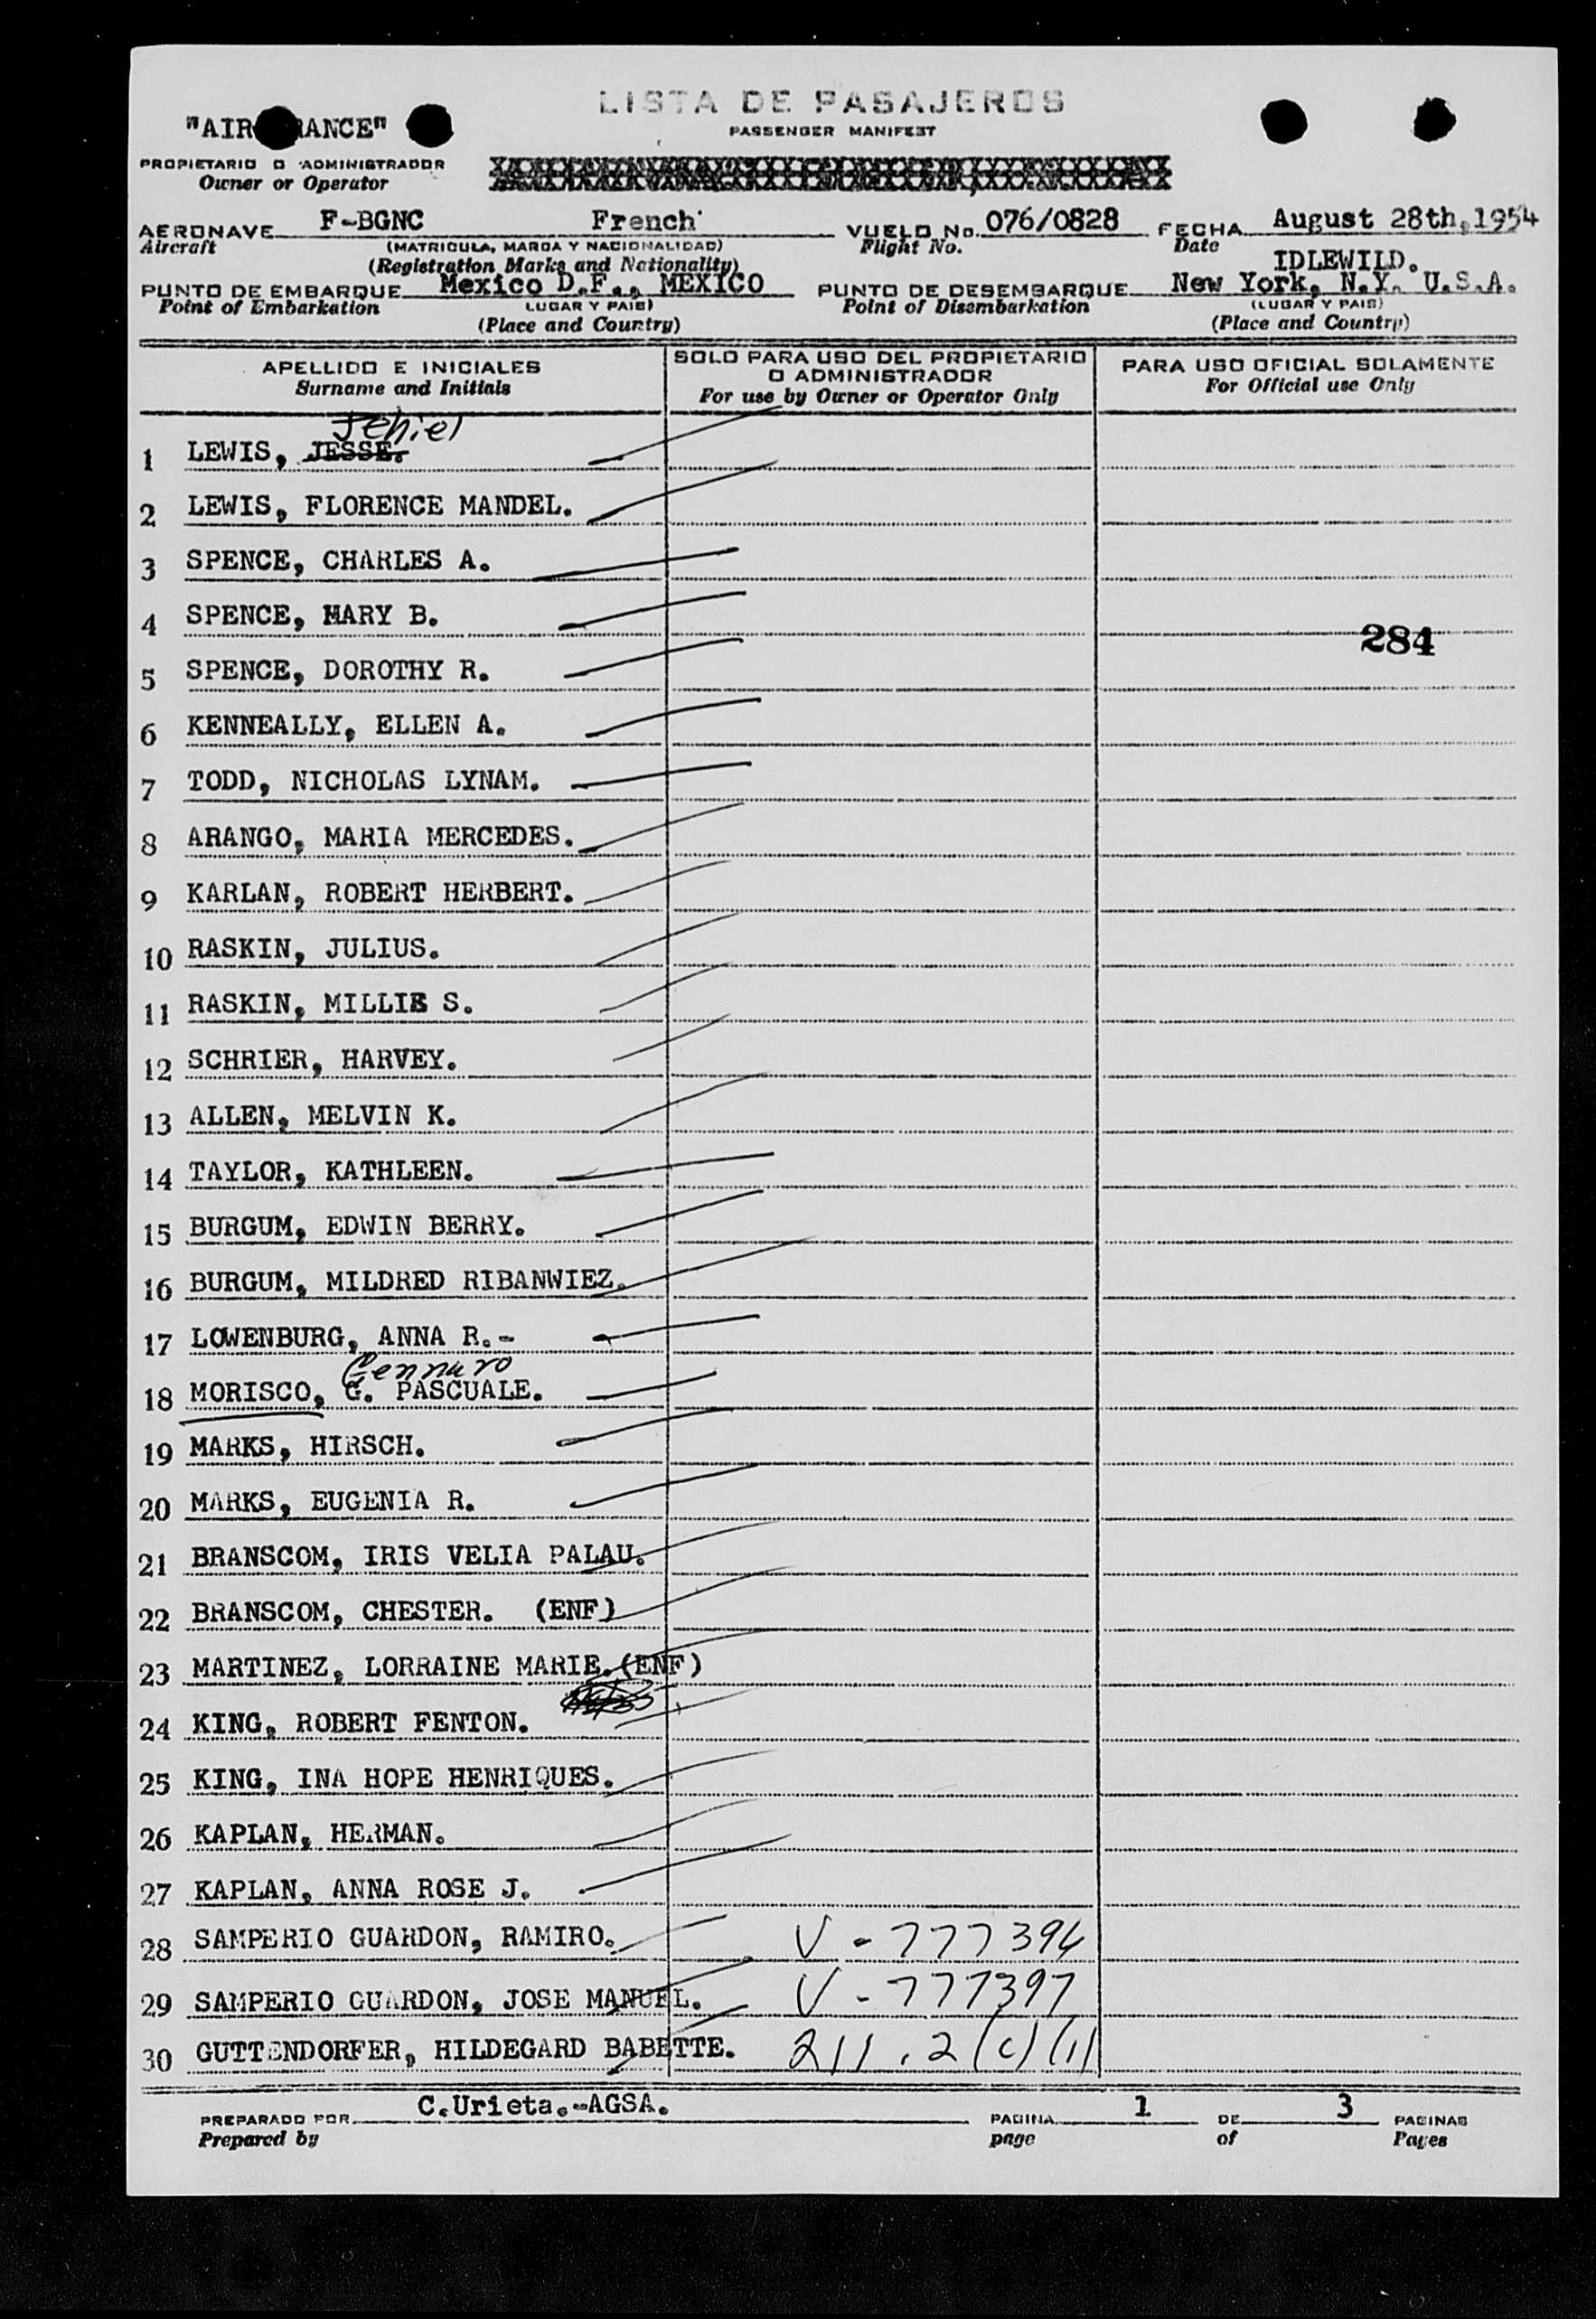 LISTA DE PASAJEROS
PASSENGER MANIFEST
"AIR RANCE"
PROPIETARIO O ADMINISTRADOR
Owner or Operator
AERONAVE F-BGNC French VUELO No. 076/0828 FECHA August 28th,1954
Aircraft (MATRICULA, MARCA Y NACIONALIDAD) Flight No. Date
(Registration Marks and Nationality) IDLEWILD.
PUNTO DE EMBARQUE Mexico D.F., MEXICO PUNTO DE DESEMBARQUE New York, N.Y. U.S.A.
Point of Embarkation (LUGAR Y PAIS) Point of Disembarkation (LUGAR Y PAIS)
(Place and Country) (Place and Country)
APELLIDO E INICIALES SOLO PARA USO DEL PROPIETARIO O ADMINISTRADOR PARA USO OFICIAL SOLAMENTE
Surname and Initials For use by Owner or Operator Only For Official use Only
Jehiel
1 LEWIS, JESSE.
2 LEWIS, FLORENCE MANDEL.
3 SPENCE, CHARLES A.
4 SPENCE, MARY B.
284
5 SPENCE, DOROTHY R.
6 KENNEALLY, ELLEN A.
7 TODD, NICHOLAS LYNAM.
8 ARANGO, MARIA MERCEDES.
9 KARLAN, ROBERT HERBERT.
10 RASKIN, JULIUS.
11 RASKIN, MILLIE S.
12 SCHRIER, HARVEY.
13 ALLEN, MELVIN K.
14 TAYLOR, KATHLEEN.
15 BURGUM, EDWIN BERRY.
16 BURGUM, MILDRED RIBANWIEZ.
17 LOWENBURG, ANNA R.-
Gennaro
18 MORISCO, G. PASCUALE.
19 MARKS, HIRSCH.
20 MARKS, EUGENIA R.
21 BRANSCOM, IRIS VELIA PALAU.
22 BRANSCOM, CHESTER. (ENF)
23 MARTINEZ, LORRAINE MARIE.(ENF)
24 KING, ROBERT FENTON.
25 KING, INA HOPE HENRIQUES.
26 KAPLAN, HERMAN.
27 KAPLAN, ANNA ROSE J.
28 SAMPERIO GUARDON, RAMIRO. V-777396
29 SAMPERIO GUARDON, JOSE MANUEL. V-777397
30 GUTTENDORFER, HILDEGARD BABETTE. 211.2(c)(1)
PREPARADO POR C.Urieta.-AGSA. PAGINA 1 DE 3 PAGINAS
Prepared by page of Pages